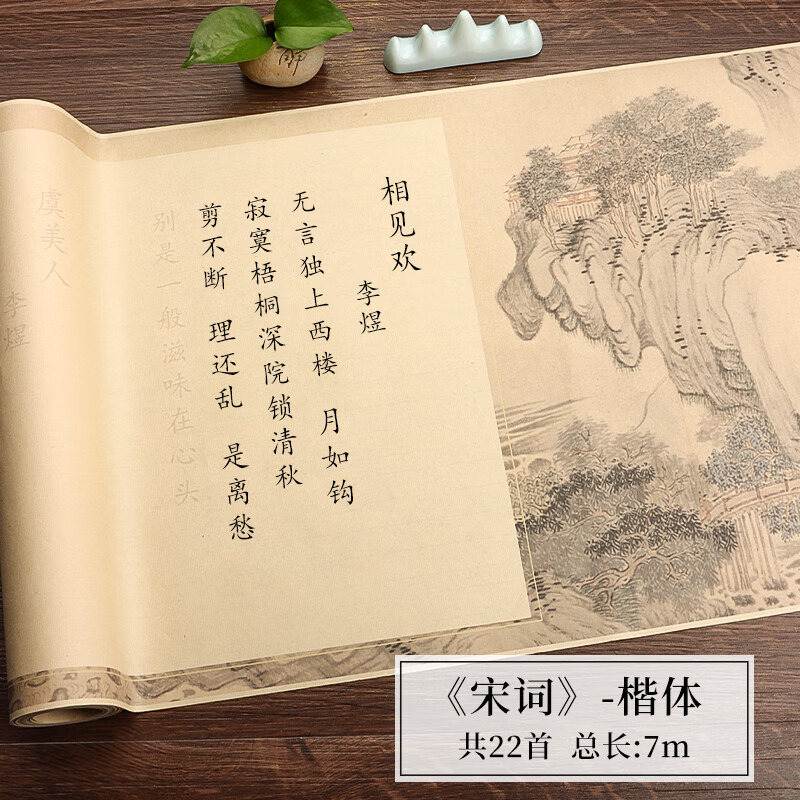 相见欢
李煜
无言独上西楼 月如钩
寂寞梧桐深院锁清秋
剪不断 理还乱 是离愁
别是一般滋味在心头
虞美人
李煜
《宋词》-楷体
共22首 总长:7m